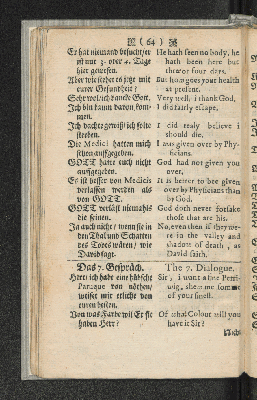 ( 64 )
Er hat niemand besucht / er
ist nur 3. oder 4. Tage
hier gewesen.
Aber wie stehet es jetzt mit
eurer Gesundheit?
Sehr wol / ich dancke Gott.
Ich bin davon kommen.
Ich dachte gewiß / ich solte
sterben.
Die Medici hatten mich
schon auffgegeben.
GOTT hatte euch nicht
auffgegeben.
Es ist besser von Medicis
verlassen werden als
von GOTT.
GOTT verläst niemahls
die seinen.
Ja auch nicht / wenn sie in
den Thal und Schatten
des Todes wären / wie
David sagt.
He hath seen no body, he
hath been here but
three or four dares.
But how goes your health
at present.
Very well, i thank God,
I did fairly escape.
I did realy believe i
should die.
I was given over by Phy-
sicians.
God had not given you
over.
It is better to bee given
over by Physicians than
by God.
God doth never forsake
those that are his.
No, even then if they we-
re in the valley and
shadow of death, as
David saith.
Das 7. Gespräch.
Herr! ich habe eine hübsche
Paruque von nöthen /
weiset mir etliche von
euren besten.
Von was Farbe wil Er sie
haben Herr?
The 7. Dialogue.
Sir, i want a fine Perri-
wig, shew me some
of your
Of what Colour will you
have it Sir?